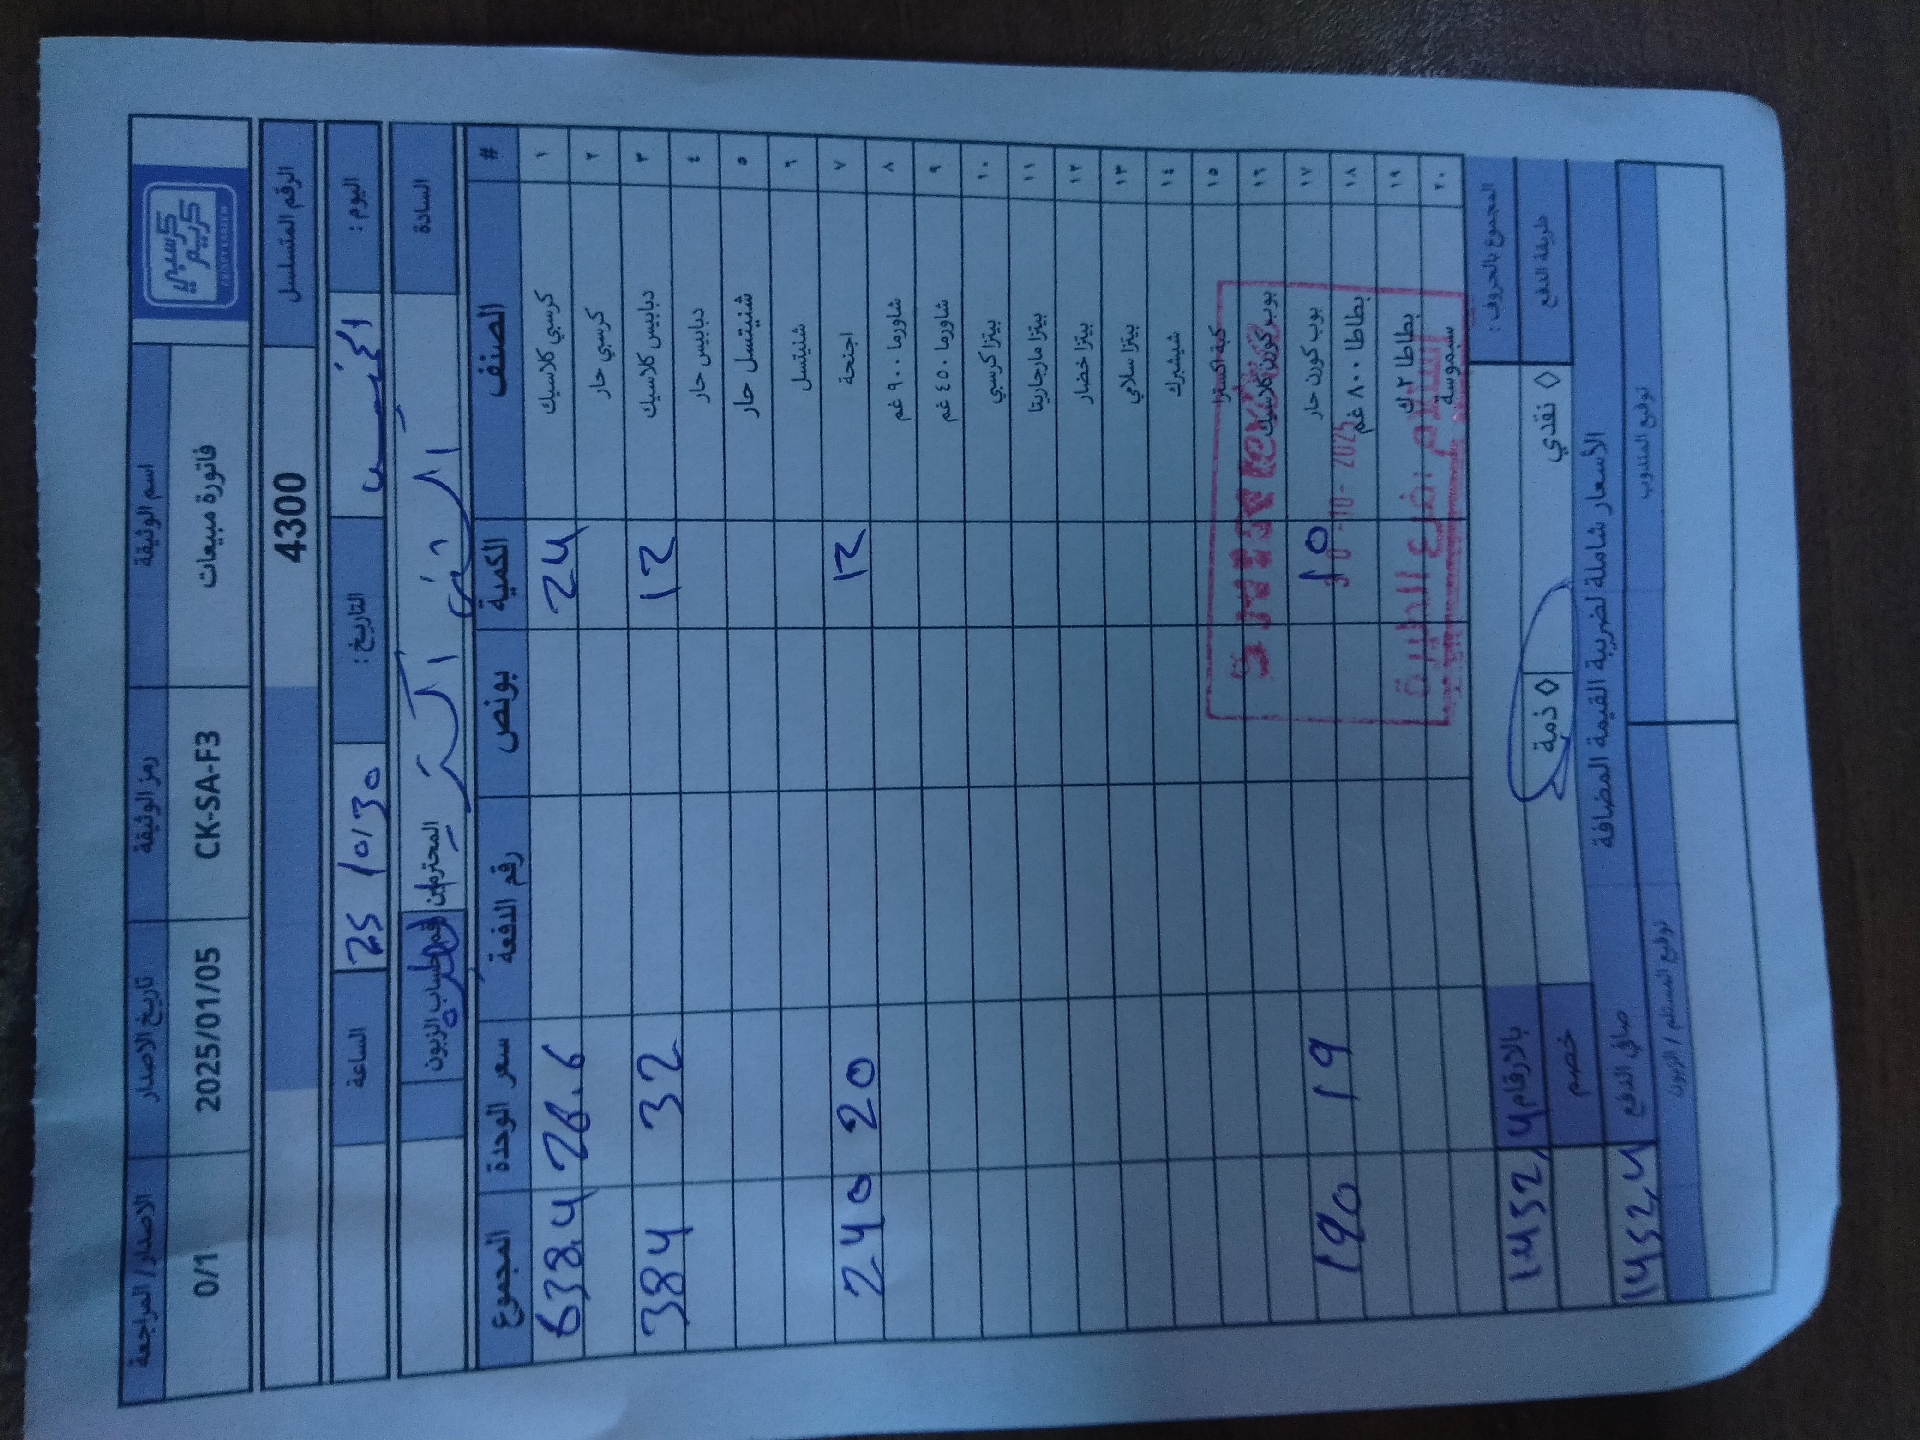 كرسبي كريم
CRISPY KREEM
اسم الوثيقة رمز الوثيقة تاريخ الاصدار الاصدار / المراجعة
فاتورة مبيعات CK-SA-F3 2025/01/05 0/1
الرقم المتسلسل 4300
اليوم : الخميس التاريخ : 25 / 10 / 30 الساعة
السادة المحترمين رقم حساب الزبون
# الصنف الكمية بونص رقم الدفعة سعر الوحدة المجموع
١ كرسبي كلاسيك 24 26.6 638.4
٢ كرسبي حار
٣ دبابيس كلاسيك 12 32 384
٤ دبابيس حار
٥ شنيتسل حار
٦ شنيتسل
٧ اجنحة 12 20 240
٨ شاورما ٩٠٠ غم
٩ شاورما ٤٥٠ غم
١٠ بيتزا كرسبي
١١ بيتزا مارجاريتا
١٢ بيتزا خضار
١٣ بيتزا سلامي
١٤ شيشبرك
١٥ كبة اكسترا
١٦ بوب كورن كلاسيك
١٧ بوب كورن حار 10 19 190
١٨ بطاطا ٨٠٠ غم
١٩ بطاطا ٢ ك
٢٠ سمبوسة
30 -10- 2025
المجموع بالحروف : بالارقام 1452,4
طريقة الدفع ◊ نقدي ◊ ذمة خصم
الأسعار شاملة لضريبة القيمة المضافة صافي الدفع 1452,4
توقيع المندوب توقيع المستلم / الزبون